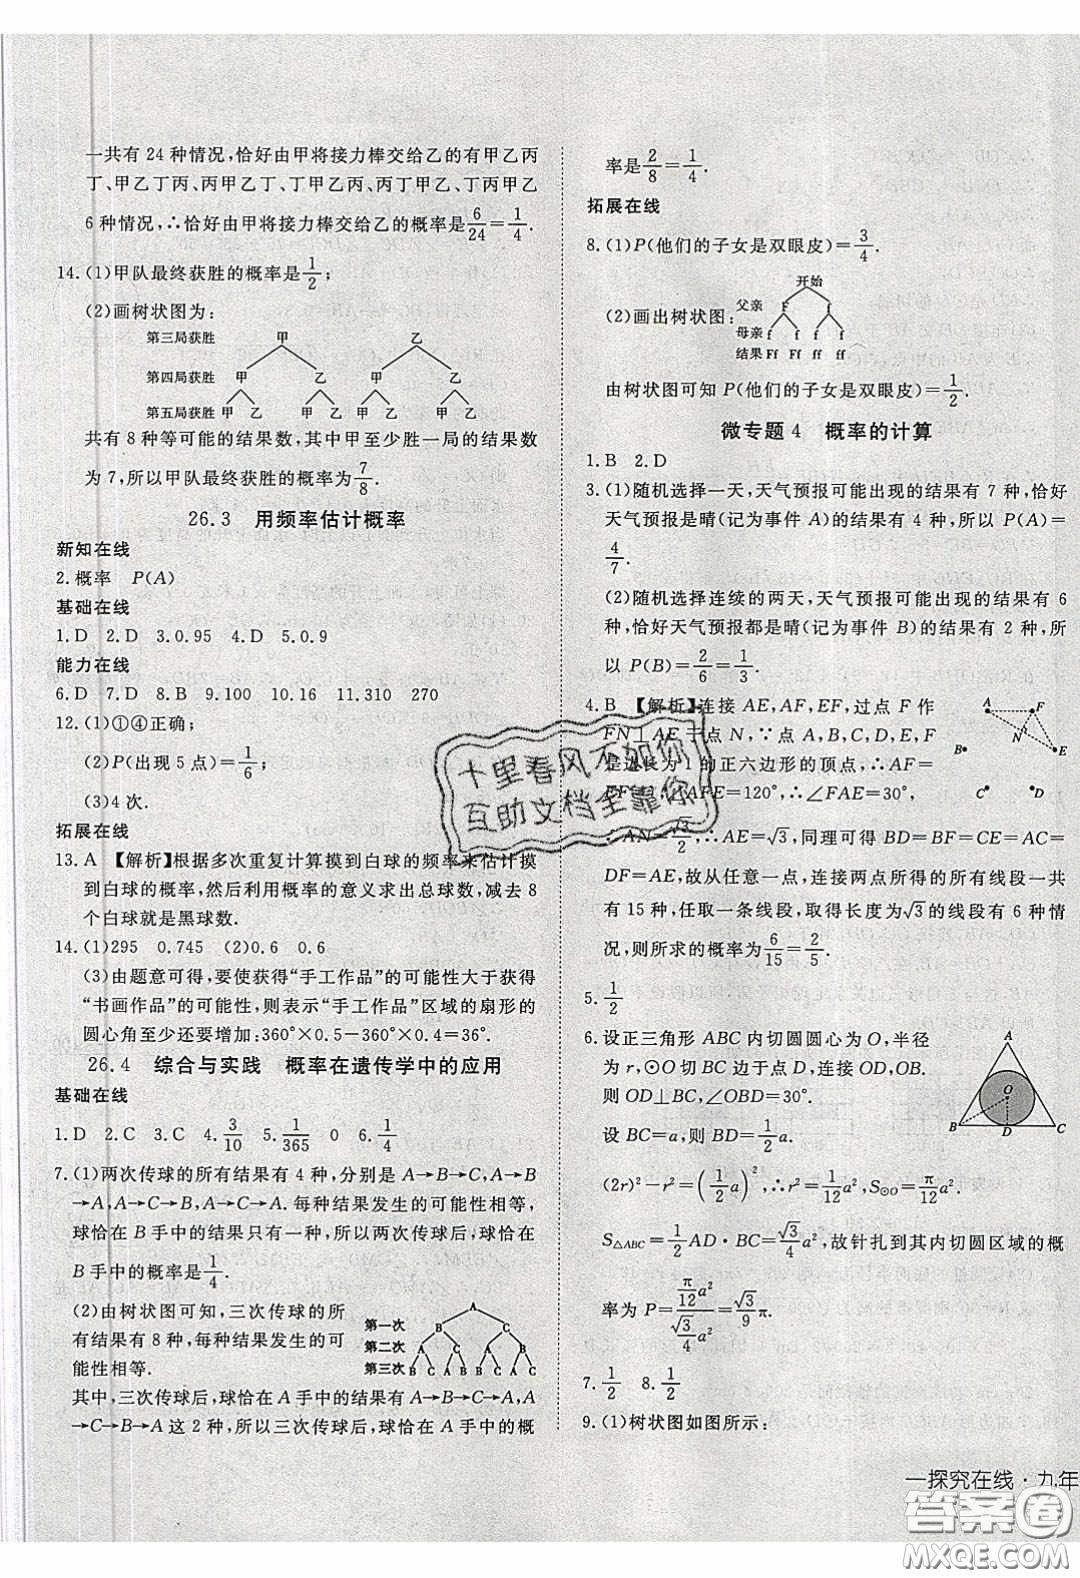 一共有 24 种情况,恰好由甲将接力棒交给乙的有甲乙丙
丁、甲乙丁丙、丙甲乙丁、丁甲乙丙、丙丁甲乙、丁丙甲乙
6 种情况,∴恰好由甲将接力棒交给乙的概率是6/24=1/4.
14.(1)甲队最终获胜的概率是1/2;
(2)画树状图为:
第三局获胜 甲 乙
第四局获胜 甲 乙 甲 乙
第五局获胜 甲 乙 甲 乙 甲 乙 甲 乙
共有 8 种等可能的结果数,其中甲至少胜一局的结果数
为 7,所以甲队最终获胜的概率为7/8.
26.3 用频率估计概率
新知在线
2.概率 P(A)
基础在线
1.D 2.D 3.0.95 4.D 5.0.9
能力在线
6.D 7.D 8.B 9.100 10.16 11.310 270
12.(1)①④正确;
(2)P(出现 5 点)=1/6;
(3)4 次.
拓展在线
13.A 【解析】根据多次重复计算摸到白球的频率来估计摸
到白球的概率,然后利用概率的意义求出总球数,减去 8
个白球就是黑球数.
14.(1)295 0.745 (2)0.6 0.6
(3)由题意可得,要使获得“手工作品”的可能性大于获得
“书画作品”的可能性,则表示“手工作品”区域的扇形的
圆心角至少还要增加:360°×0.5-360°×0.4=36°.
26.4 综合与实践 概率在遗传学中的应用
基础在线
1.D 2.C 3.C 4.3/10 5.1/365 0 6.1/4
7.(1)两次传球的所有结果有 4 种,分别是 A→B→C,A→B
→A,A→C→B,A→C→A.每种结果发生的可能性相等,
球恰在 B 手中的结果只有一种,所以两次传球后,球恰在
B 手中的概率是1/4.
(2)由树状图可知,三次传球的所
有结果有 8 种,每种结果发生的可
能性相等.
A
第一次 B C
第二次 A C A B
第三次 B C A B B C A C
其中,三次传球后,球恰在 A 手中的结果有 A→B→C→A,A
→C→B→A 这 2 种,所以三次传球后,球恰在 A 手中的概
率是2/8=1/4.
拓展在线
8.(1)P(他们的子女是双眼皮)=3/4.
(2)画出树状图:
开始
父亲 F f
母亲 f f f f
结果 Ff Ff ff ff
由树状图可知 P(他们的子女是双眼皮)=1/2.
微专题 4 概率的计算
1.B 2.D
3.(1)随机选择一天,天气预报可能出现的结果有 7 种,恰好
天气预报是晴(记为事件 A)的结果有 4 种,所以 P(A)=
4/7.
(2)随机选择连续的两天,天气预报可能出现的结果有 6
种,恰好天气预报都是晴(记为事件 B)的结果有 2 种,所
以 P(B)=2/6=1/3.
4.B 【解析】连接 AE,AF,EF,过点 F 作
FN⊥AE 于点 N,∵点
是边长为 1 的正六边形的顶点,∴AF=
=120°,∴∠FAE=30°,
∴AN=√3/2,∴AE=√3,同理可得 BD=BF=CE=AC=
DF=AE,故从任意一点,连接两点所得的所有线段一共
有 15 种,任取一条线段,取得长度为√3的线段有 6 种情
况,则所求的概率为6/15=2/5.
A F
N
B E
C D
5.1/2
6.设正三角形 ABC 内切圆圆心为 O,半径
为 r,⊙O 切 BC 边于点 D,连接 OD,OB.
则 OD⊥BC,∠OBD=30°.
设 BC=a,则 BD=1/2a.
A
O
B D C
(2r)²-r²=(1/2a)²,∴r²=1/12a²,S⊙O=π/12a².
S△ABC=1/2AD·BC=√3/4a²,故针扎到其内切圆区域的概
率为 P=(π/12a²)/(√3/4a²)=√3/9π.
7.1/2 8.1/2
9.(1)树状图如图所示:
十里春风不如你
互助文档全靠你
一探究在线·九年
答案圈
MXQE.COM